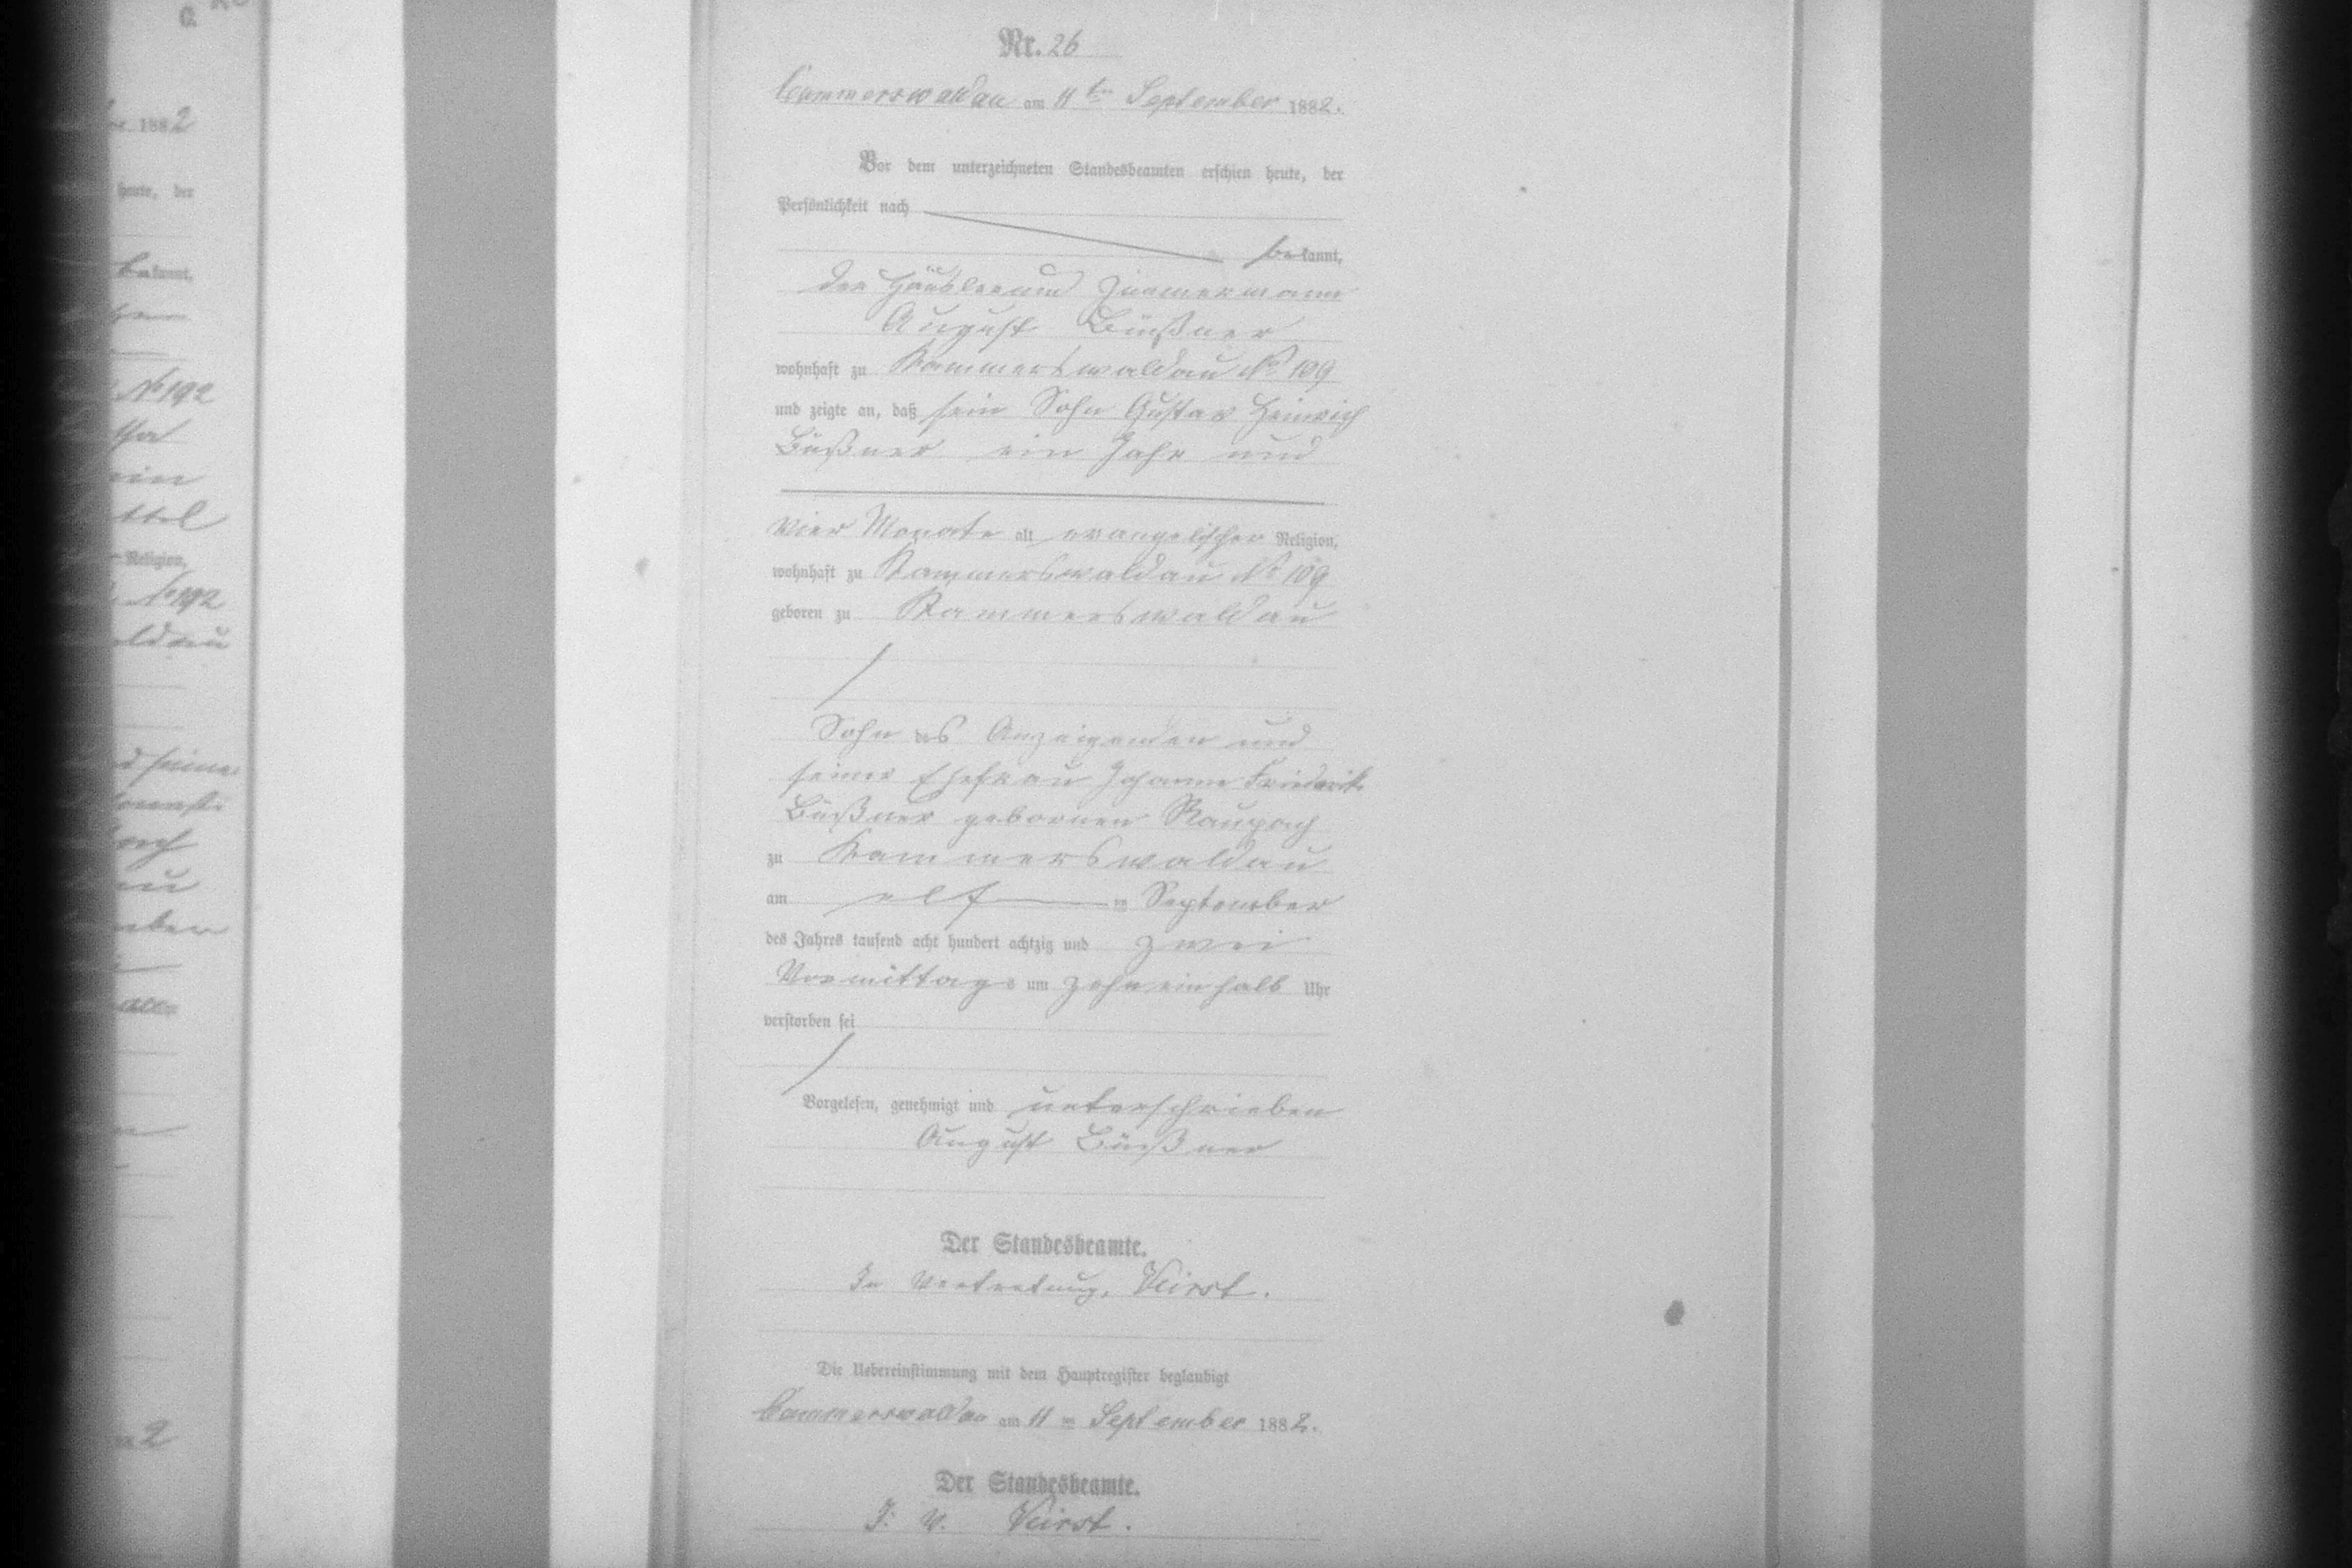 Nr. 26
Cammerswaldau am 11 ten September 1882.
Vor dem unterzeichneten Standesbeamten erschien heute, der
Persönlichkeit nach
bekannt,
der Häusler und Zimmermann
August Büßner
wohnhaft zu Kammerswaldau No 109
und zeigte an, daß sein Sohn Gustav Heinrich
Büßner ein Jahr und
vier Monate alt, evangelischer Religion,
wohnhaft zu Kammerswaldau No 109
geboren zu Kammerswaldau
Sohn des Anzeigenden und
seiner Ehefrau Johanne Friederike
Büßner gebornen Raupach
zu Kammerswaldau
am elf ten September
des Jahres tausend acht hundert achtzig und zwei
Vormittags um zehneinhalb Uhr
verstorben sei
Vorgelesen, genehmigt und unterschrieben
August Büßner
Der Standesbeamte.
In Vertretung, Veirst.
Die Uebereinstimmung mit dem Hauptregister beglaubigt
Cammerswaldau am 11 ten September 1882.
Der Standesbeamte.
J. V. Veirst.